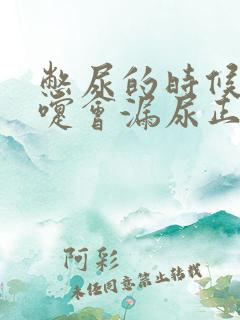 憋尿的时候
嚏会漏尿正
阿彩
未经同意禁止转载